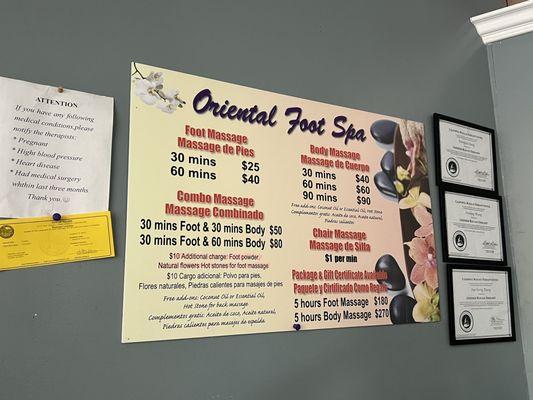 ATTENTION
If you have any following
medical conditions,please
notify the therapists:
* Pregnant
* Hight blood pressure
* Heart disease
* Had medical surgery
whthin last three months
Thank you.
Oriental Foot Spa
Foot Massage
Massage de Pies
30 mins $25
60 mins $40
Combo Massage
Massage Combinado
30 mins Foot & 30 mins Body $50
30 mins Foot & 60 mins Body $80
$10 Additional charge: Foot powder,
Natural flowers Hot stones for foot massage
$10 Cargo adicional: Polvo para pies,
Flores naturales, Piedras calientes para masajes de pies
Free add-ons: Coconut Oil or Essential Oil,
Hot Stone for back massage
Complementos gratis: Aceite de coco, Aceite esencial,
Piedras calientes para masajes de espalda
Body Massage
Massage de Cuerpo
30 mins $40
60 mins $60
90 mins $90
Free add-ons: Coconut Oil or Essential Oil, Hot Stone
Complementos gratis: Aceite de coco, Aceite esencial,
Piedras calientes
Chair Massage
Massage de Silla
$1 per min
Package & Gift Certificate Available
Paquete y Cirtificado Como Regalo
5 hours Foot Massage $180
5 hours Body Massage $270